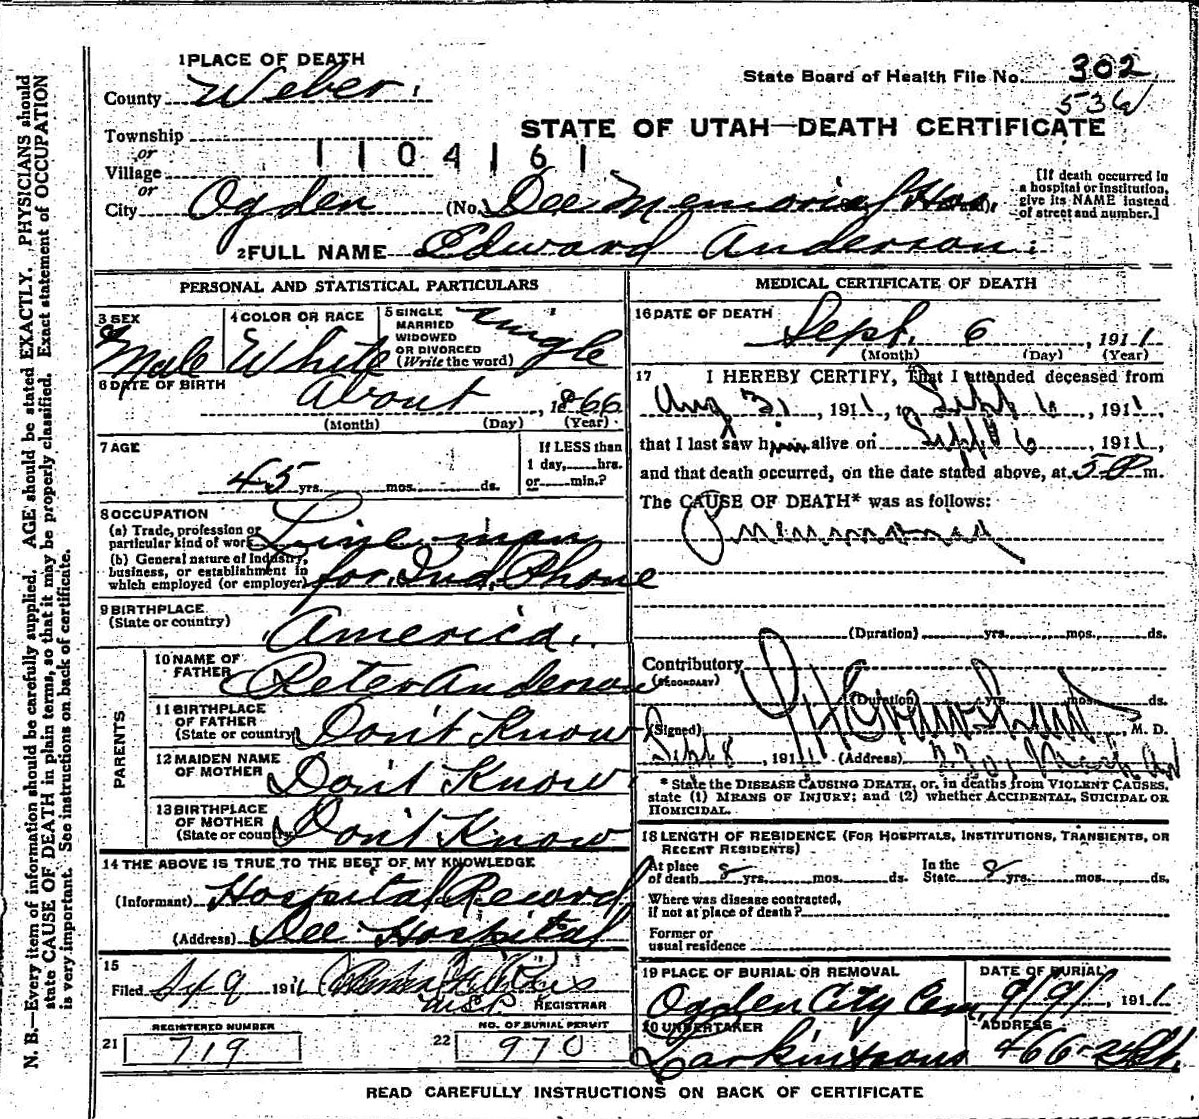 N. B.—Every item of information should be carefully supplied. AGE should be stated EXACTLY. PHYSICIANS should
state CAUSE OF DEATH in plain terms, so that it may be properly classified. Exact statement of OCCUPATION
is very important. See instructions on back of certificate.
1 PLACE OF DEATH
County Weber
State Board of Health File No. 302
536
Township
or
Village
or
1104161
STATE OF UTAH—DEATH CERTIFICATE
City Ogden (No. Dee Memorial Hos.
[If death occurred in
a hospital or institution,
give its NAME instead
of street and number.]
2 FULL NAME Edward Anderson
PERSONAL AND STATISTICAL PARTICULARS
3 SEX
Male
4 COLOR OR RACE
White
5 SINGLE
MARRIED
WIDOWED
OR DIVORCED
(Write the word)
Single
6 DATE OF BIRTH
About, 1866
(Month) (Day) (Year)
7 AGE
45 yrs. mos. ds.
If LESS than
1 day, hrs.
or min.?
8 OCCUPATION
(a) Trade, profession or
particular kind of work Line man
(b) General nature of Industry,
business, or establishment in
which employed (or employer) for Ind. Phone
9 BIRTHPLACE
(State or country) America.
PARENTS
10 NAME OF
FATHER Peter Anderson
11 BIRTHPLACE
OF FATHER
(State or country) Don't Know
12 MAIDEN NAME
OF MOTHER Don't Know
13 BIRTHPLACE
OF MOTHER
(State or country) Don't Know
14 THE ABOVE IS TRUE TO THE BEST OF MY KNOWLEDGE
(Informant) Hospital Record
(Address) Dee Hospital
15
Filed Sep 9 1911
REGISTRAR
REGISTERED NUMBER
21 719
NO. OF BURIAL PERMIT
22 970
MEDICAL CERTIFICATE OF DEATH
16 DATE OF DEATH
Sept. 6, 1911
(Month) (Day) (Year)
17 I HEREBY CERTIFY, That I attended deceased from
Aug 31, 1911, to Sept 6, 1911,
that I last saw him alive on Sept 6, 1911,
and that death occurred, on the date stated above, at 5 P m.
The CAUSE OF DEATH* was as follows:
Pneumonia
(Duration) yrs. mos. ds.
Contributory
(SECONDARY)
(Duration) yrs. mos. ds.
(Signed), M. D.
Sept 8, 1911 (Address)
* State the DISEASE CAUSING DEATH, or, in deaths from VIOLENT CAUSES,
state (1) MEANS OF INJURY; and (2) whether ACCIDENTAL, SUICIDAL OR
HOMICIDAL.
18 LENGTH OF RESIDENCE (FOR HOSPITALS, INSTITUTIONS, TRANSIENTS, OR
RECENT RESIDENTS)
At place
of death yrs. mos. ds.
In the
State yrs. mos. ds.
Where was disease contracted,
if not at place of death?
Former or
usual residence
19 PLACE OF BURIAL OR REMOVAL
Ogden City Cem
DATE OF BURIAL
9/9/, 1911
20 UNDERTAKER
Larkin & Sons
ADDRESS
466-24 St.
READ CAREFULLY INSTRUCTIONS ON BACK OF CERTIFICATE